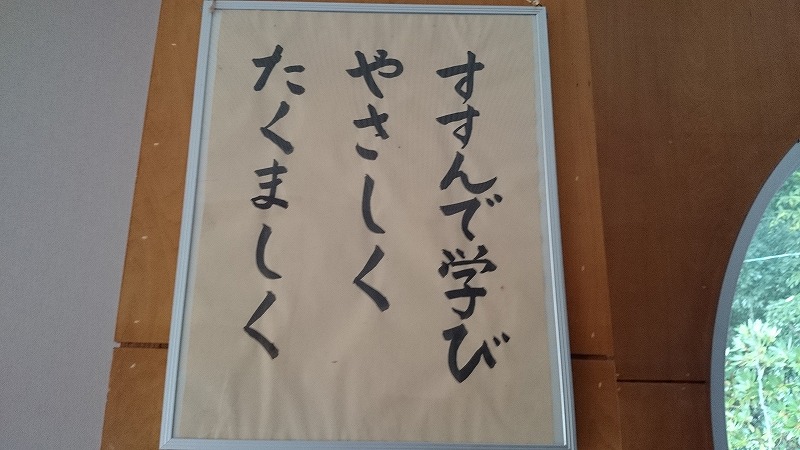 すすんで学び
やさしく
たくましく